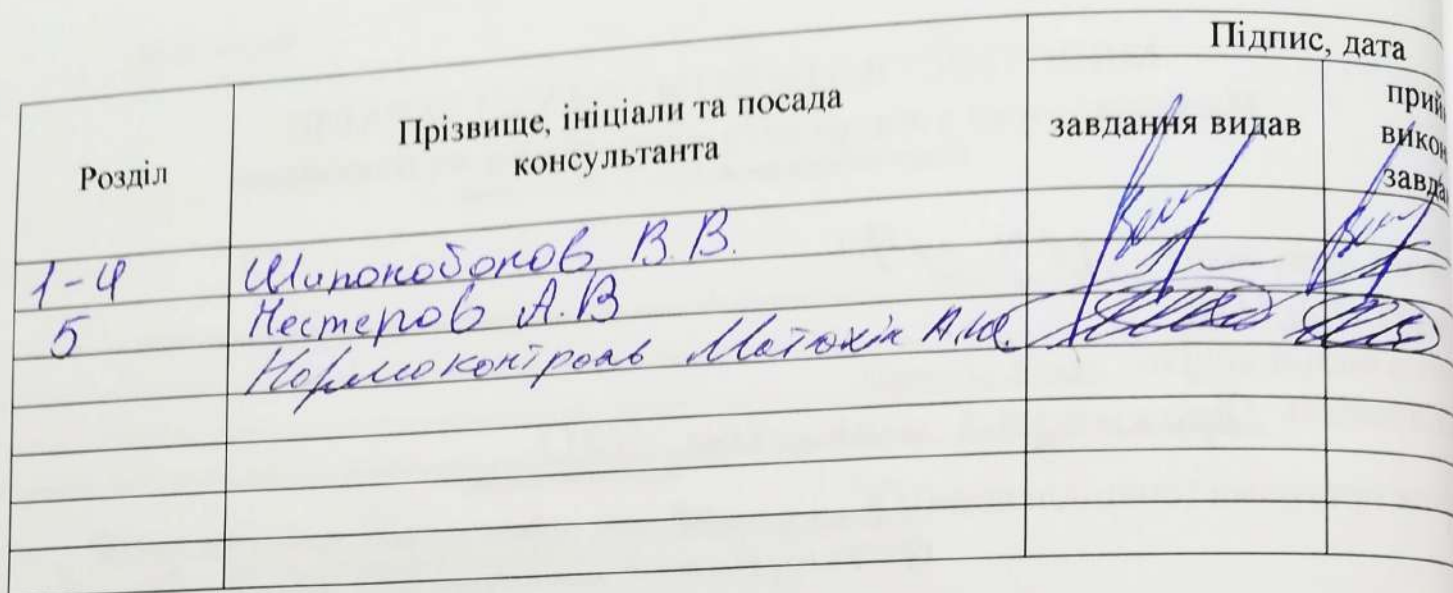 Розділ
Прізвище, ініціали та посада
консультанта
Підпис, дата
завдання видав
прий
викон
завда
1-4 Шипокобоков В.В.
5 Нестеров А.В
Нормоконтроль Матюхін А.Ю.